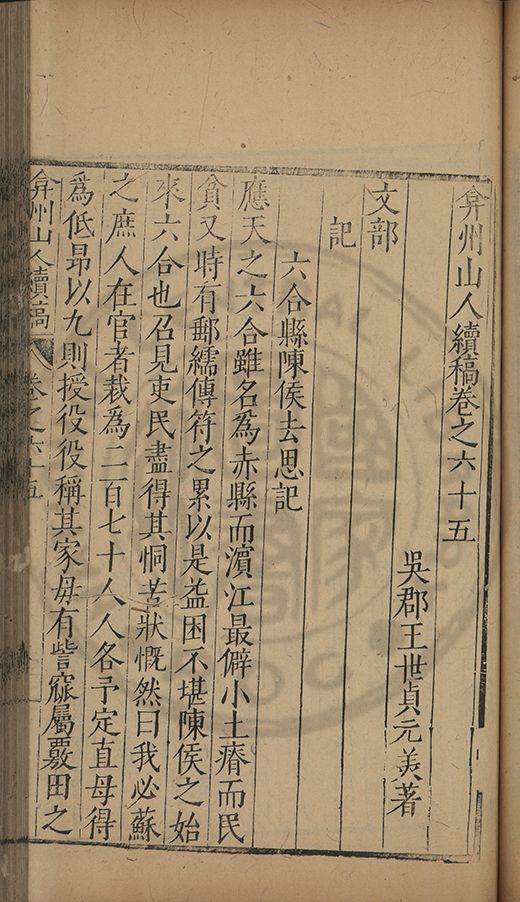 弇州山人續稿卷之六十五
吳郡王世貞元美著
文部
記
六合縣陳侯去思記
應天之六合雖名為赤縣而濵江最僻小土瘠而民
貧又時有郵繻傳符之累以是益困不堪陳侯之始
來六合也召見吏民盡得其恫苦狀慨然曰我必蘇
之庶人在官者裁為二百七十人人各予定直毋得
為低昻以九則授役役稱其家毋有訾窳屬覈田之
弇州山人續稿 卷之六十五